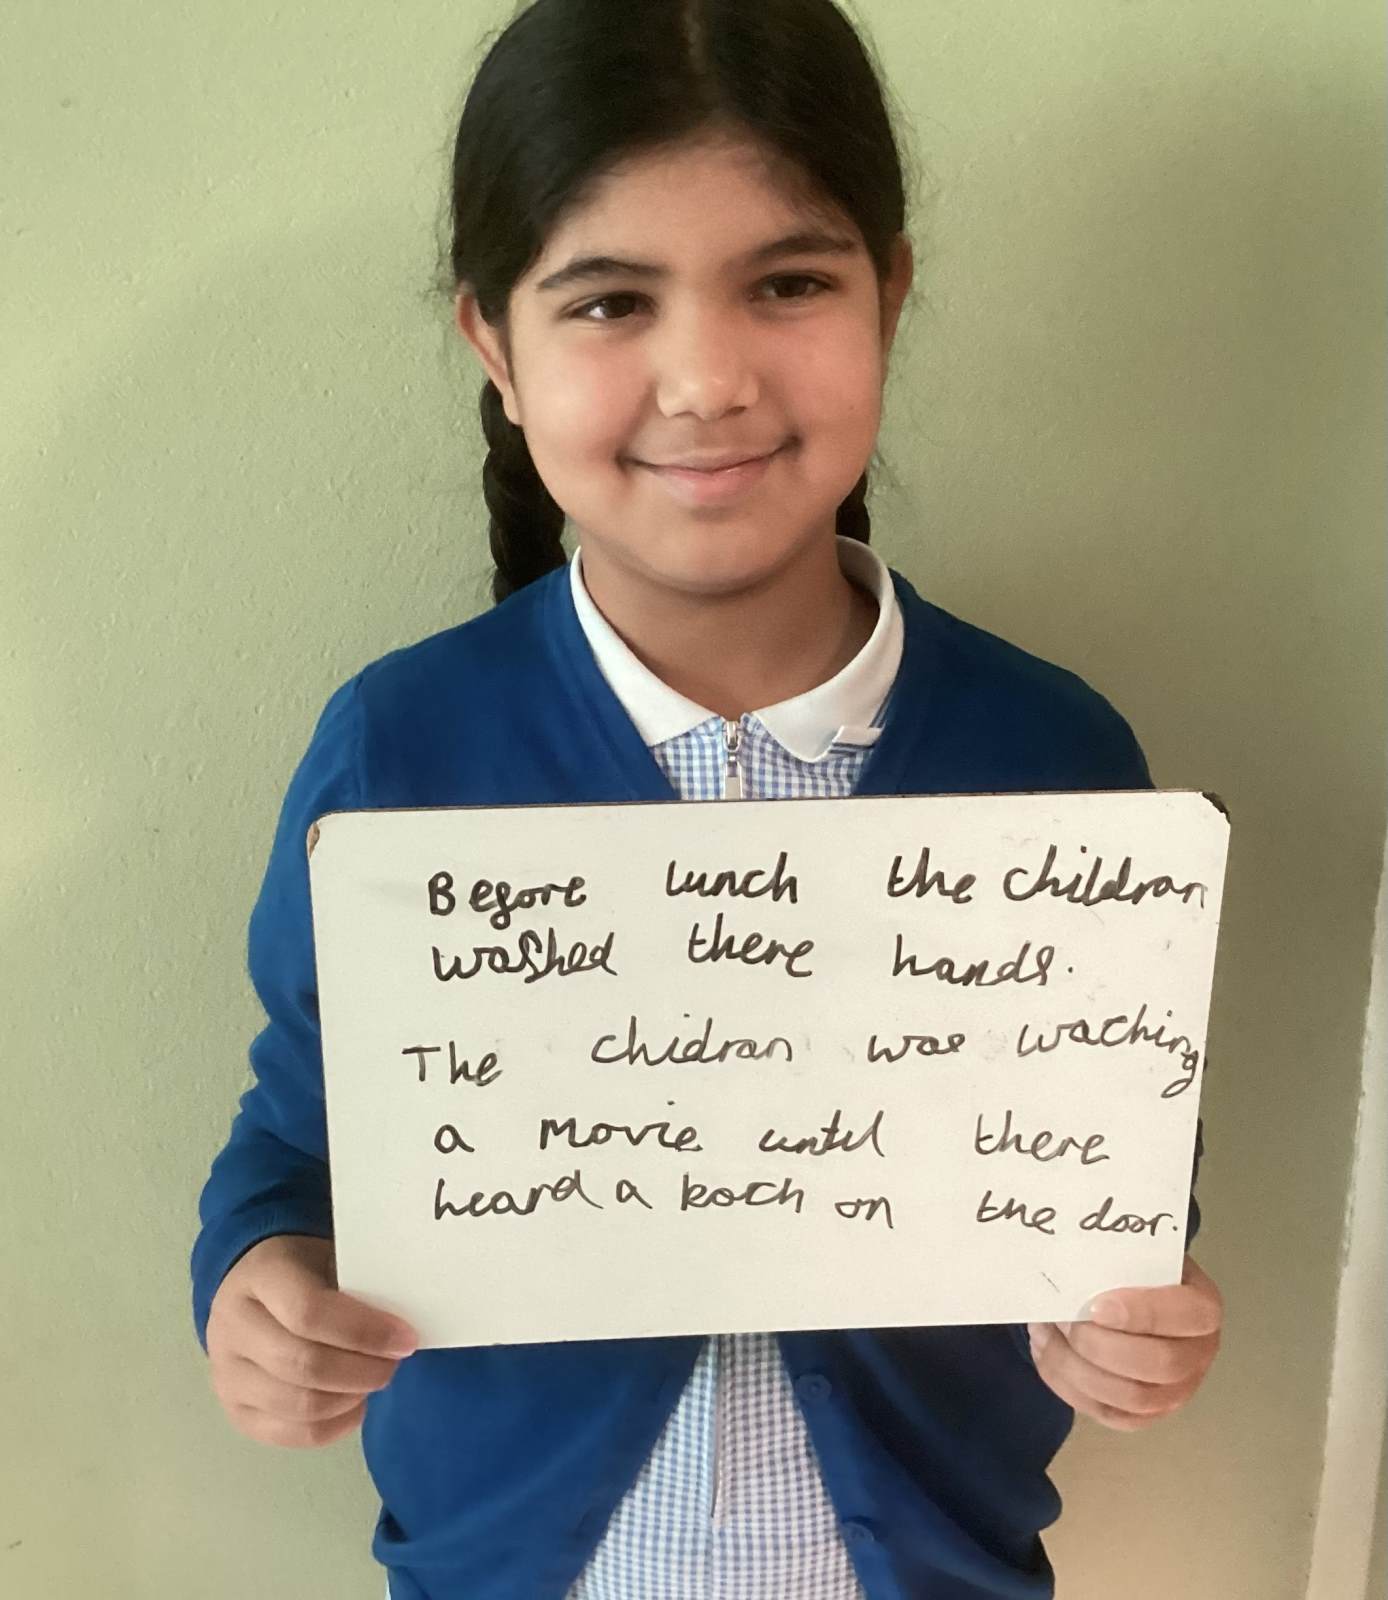 Before lunch the childran
washed there hands.
The chidran was waching
a movie until there
heard a koch on the door.